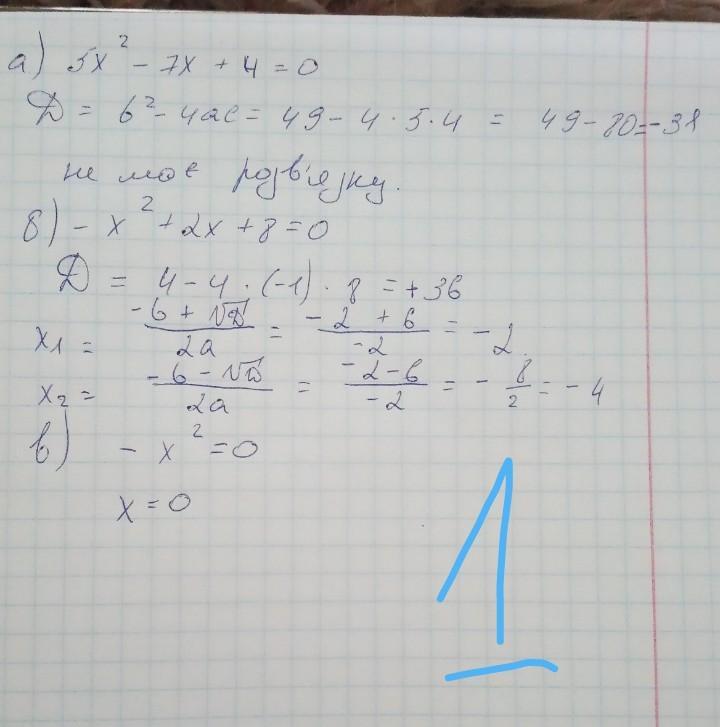 а) 5x² - 7x + 4 = 0
D = b² - 4ac = 49 - 4 · 5 · 4 = 49 - 80 = -31
не має розв'язку.
б) - x² + 2x + 8 = 0
D = 4 - 4 · (-1) · 8 = + 36
x₁ = (-b + √D)/(2a) = (-2 + 6)/(-2) = -2.
x₂ = (-b - √D)/(2a) = (-2-6)/(-2) = - 8/2 = -4
в) - x² = 0
x = 0
1